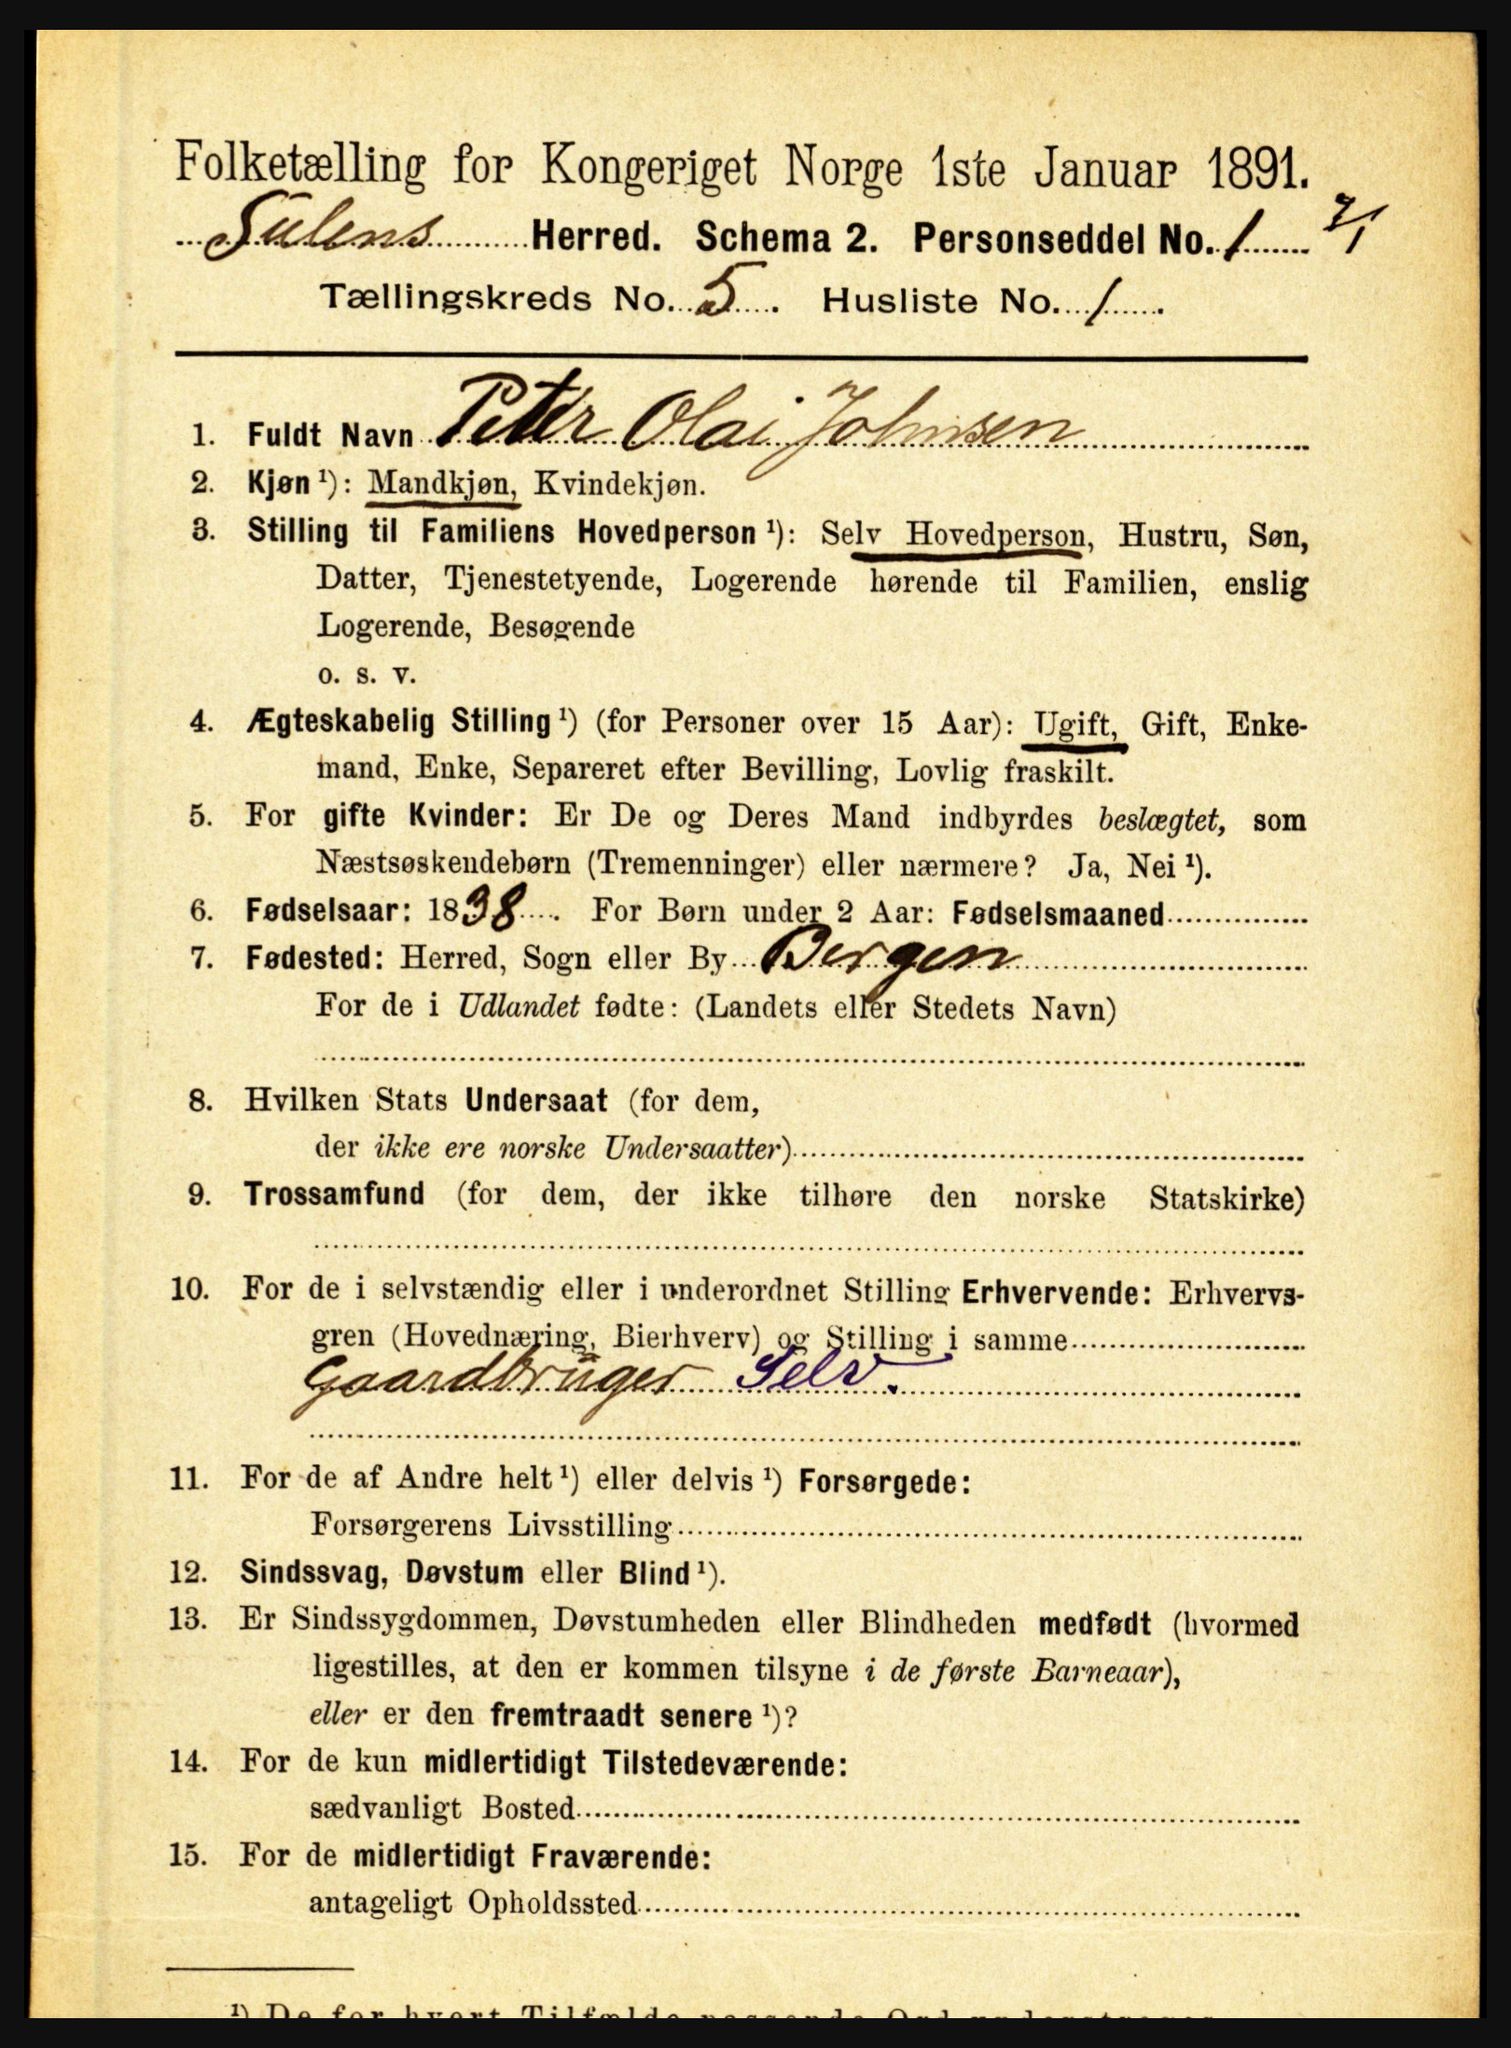 Folketælling for Kongeriget Norge 1ste Januar 1891.
Sulens Herred. Schema 2. Personseddel No. 1
Tællingskreds No. 5. Husliste No. 1.
1. Fuldt Navn Peter Olai Johnsen
2. Kjøn ¹): Mandkjøn, Kvindekjøn.
3. Stilling til Familiens Hovedperson ¹): Selv Hovedperson, Hustru, Søn,
Datter, Tjenestetyende, Logerende hørende til Familien, enslig
Logerende, Besøgende
o. s. v.
4. Ægteskabelig Stilling ¹) (for Personer over 15 Aar): Ugift, Gift, Enke-
mand, Enke, Separeret efter Bevilling, Lovlig fraskilt.
5. For gifte Kvinder: Er De og Deres Mand indbyrdes beslægtet, som
Næstsøskendebørn (Tremenninger) eller nærmere? Ja, Nei ¹).
6. Fødselsaar: 1838. For Børn under 2 Aar: Fødselsmaaned
7. Fødested: Herred, Sogn eller By Bergen
For de i Udlandet fødte: (Landets eller Stedets Navn)
8. Hvilken Stats Undersaat (for dem,
der ikke ere norske Undersaatter)
9. Trossamfund (for dem, der ikke tilhøre den norske Statskirke)
10. For de i selvstændig eller i underordnet Stilling Erhvervende: Erhvervs-
gren (Hovednæring, Bierhverv) og Stilling i samme
Gaardbruger Selv.
11. For de af Andre helt ¹) eller delvis ¹) Forsørgede:
Forsørgerens Livsstilling
12. Sindssvag, Døvstum eller Blind ¹).
13. Er Sindssygdommen, Døvstumheden eller Blindheden medfødt (hvormed
ligestilles, at den er kommen tilsyne i de første Barneaar),
eller er den fremtraadt senere ¹)?
14. For de kun midlertidigt Tilstedeværende:
sædvanligt Bosted
15. For de midlertidigt Fraværende:
antageligt Opholdssted
¹) De for hvert Tilfælde passende Ord understreges